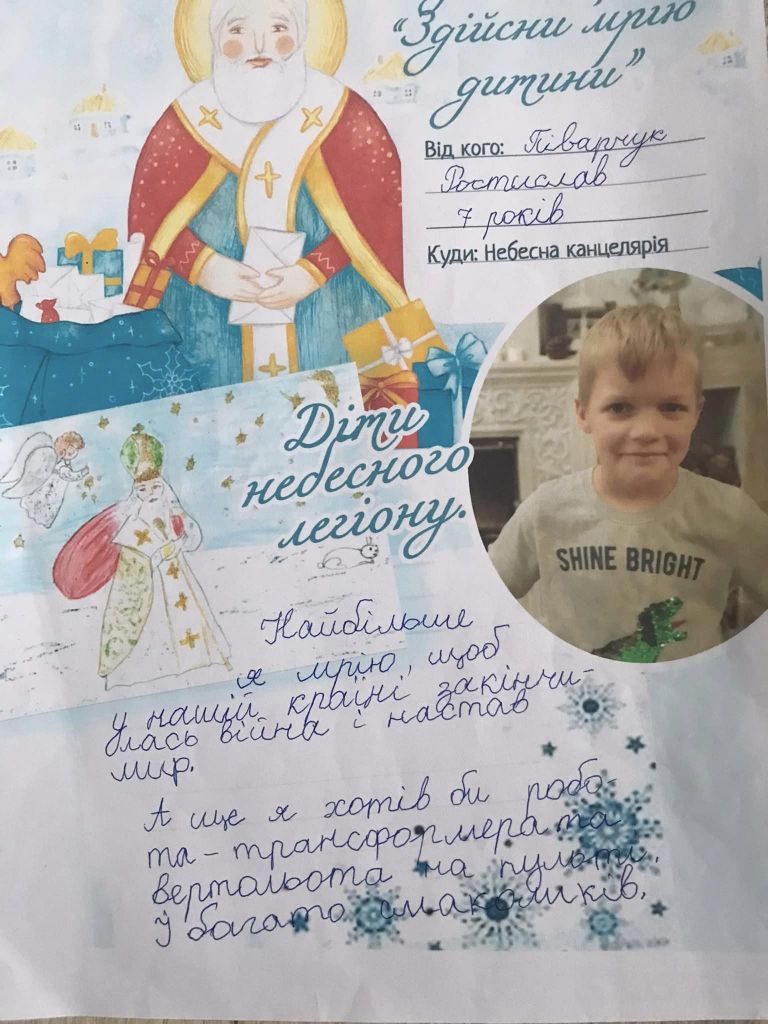 “Здійсни мрію
дитини”
Від кого: Піварчук
Ростислав
7 років
Куди: Небесна канцелярія
Діти
небесного
легіону.
SHINE BRIGHT
Найбільше
я мрію, щоб
у нашій країні закінчи-
лась війна і настав
мир.
А ще я хотів би робо-
та-трансформера та
вертольота на пульті.
Й багато смаколиків.